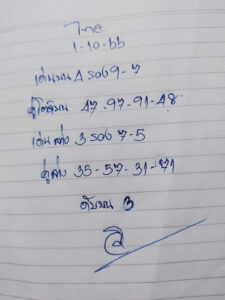 ไทย
1-10-66
เด่นบน 4 รอง 9-7
คู่โต๊ดบน 47-97-91-48
เด่นล่าง 3 รอง 7-5
คู่ล่าง 35-57-31-71
ดับบน 3